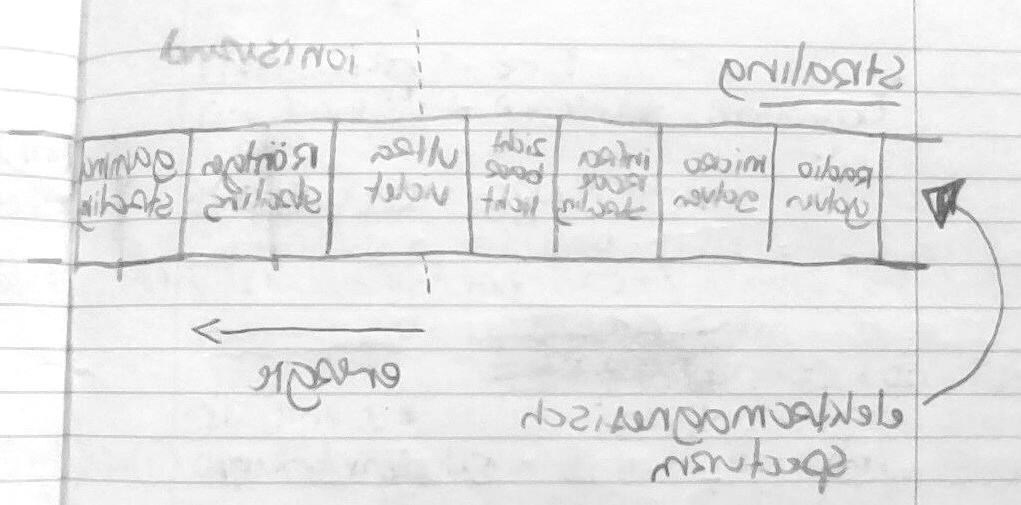 ioniserend
straling
Radio
golven
micro
golven
infra
Rode
straling
zicht
baar
licht
ultra
violet
Röntgen
straling
gamma
straling
energie
elektromagnetisch
specturm